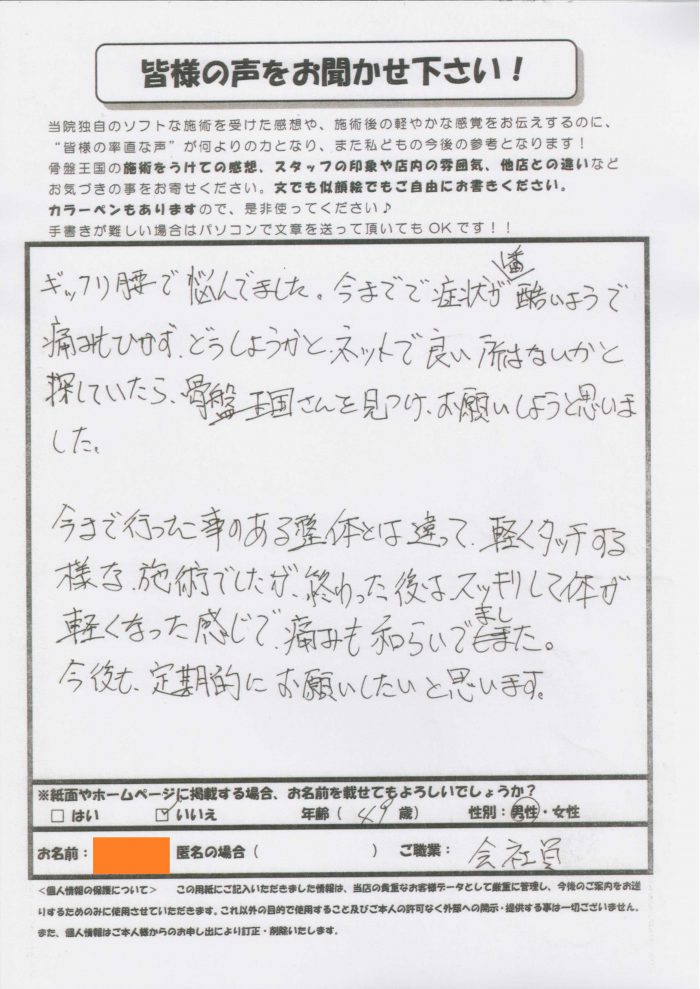 皆様の声をお聞かせ下さい！
当院独自のソフトな施術を受けた感想や、施術後の軽やかな感覚をお伝えするのに、
“皆様の率直な声”が何よりの力となり、また私どもの今後の参考となります！
骨盤王国の施術をうけての感想、スタッフの印象や店内の雰囲気、他店との違いなど
お気づきの事をお寄せください。文でも似顔絵でもご自由にお書きください。
カラーペンもありますので、是非使ってください♪
手書きが難しい場合はパソコンで文章を送って頂いてもＯＫです！！
ギックリ腰で悩んでました。今までで症状が一番酷いようで
痛みもひかず、どうしようかと、ネットで良い所はないかと
探していたら、骨盤王国さんを見つけ、お願いしようと思いま
した。
今まで行った事のある整体とは違って、軽くタッチする
様な、施術でしたが、終わった後は、スッキリして体が
軽くなった感じで、痛みも和らいでました。
今後も、定期的にお願いしたいと思います。
※紙面やホームページに掲載する場合、お名前を載せてもよろしいでしょうか？
□ はい ☑ いいえ 年齢（ 49 歳） 性別：男性・女性
お名前： 匿名の場合（ ） ご職業： 会社員
＜個人情報の保護について＞ この用紙にご記入いただきました情報は、当店の貴重なお客様データとして厳重に管理し、今後のご案内をお送
りするためのみに使用させていただきます。これ以外の目的で使用すること及びご本人の許可なく外部への開示・提供する事は一切ございません。
また、個人情報はご本人様からのお申し出により訂正・削除いたします。